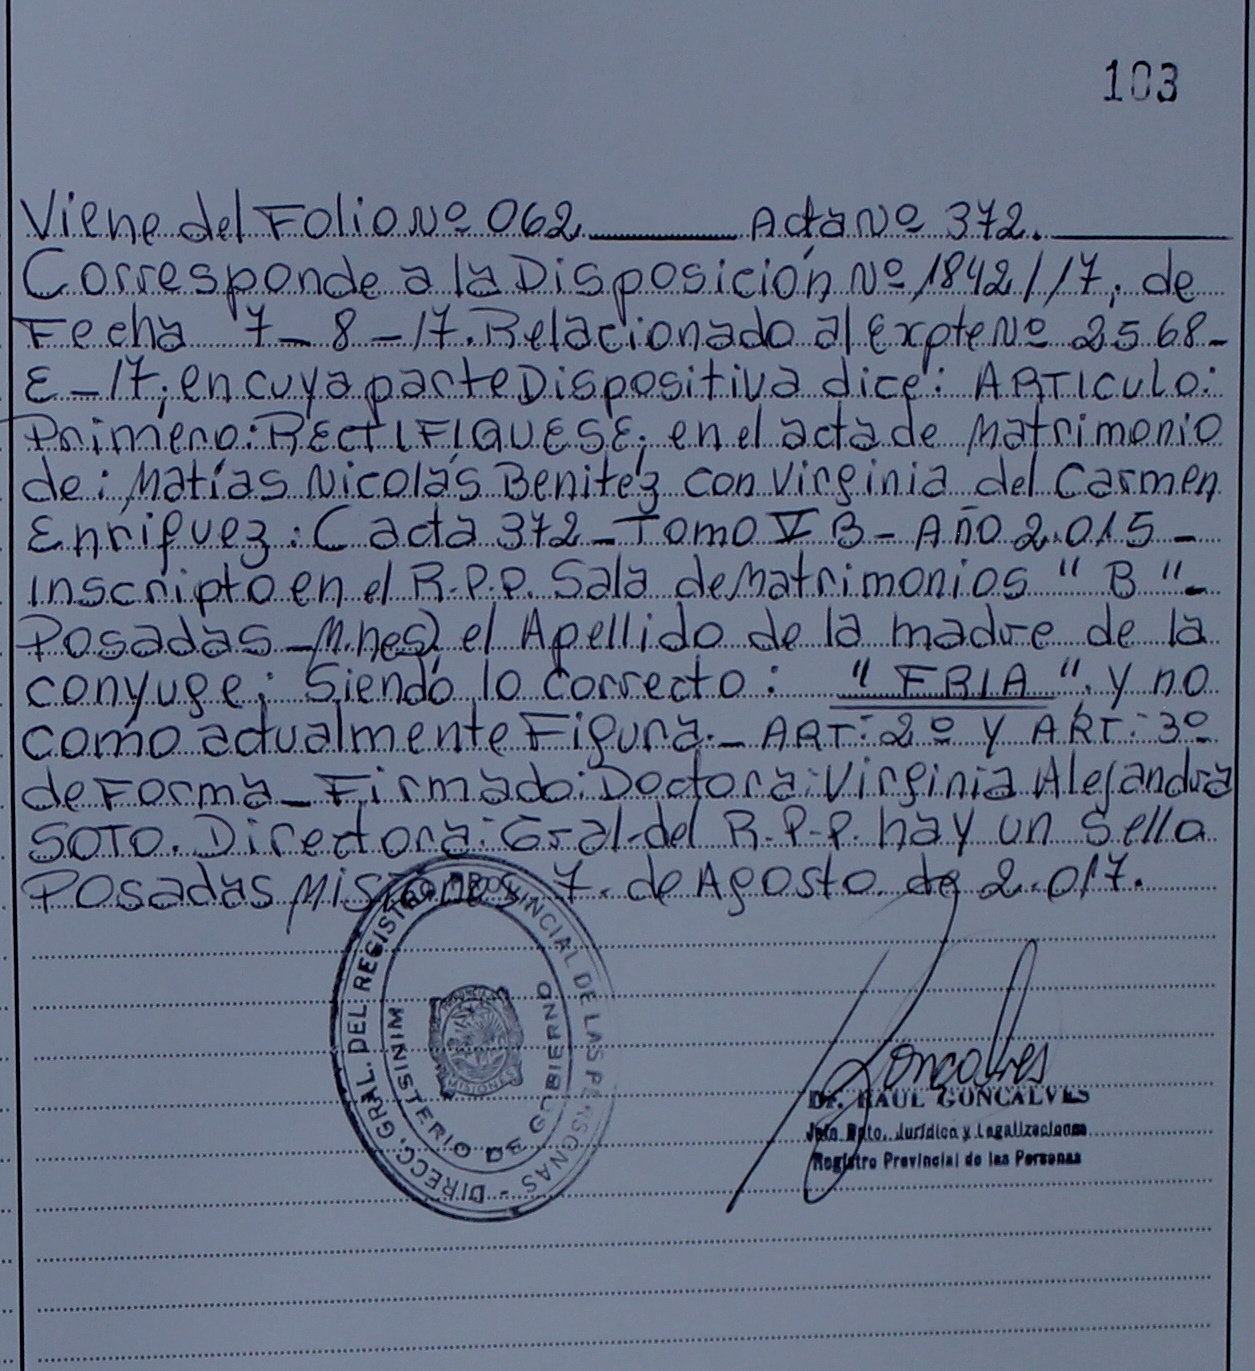 103
Viene del Folio Nº 062 Acta Nº 372.
Corresponde a la Disposición Nº 1842//17, de
Fecha 7-8-17. Relacionado al Expte Nº 2568-
E-17; en cuya parte Dispositiva dice: ARTICULO:
Primero: RECTIFIQUESE, en el acta de Matrimonio
de: Matías Nicolás Benitez con Virginia del Carmen
Enriquez: (acta 372 - Tomo V B - Año 2.015 -
Inscripto en el R.P.P. Sala de Matrimonios "B" -
Posadas - M.nes) el Apellido de la madre de la
conyuge; Siendo lo Correcto: "FRIA", y no
como actualmente Figura. - ART: 2º y ART: 3º
de Forma - Firmado: Doctora: Virginia Alejandra
SOTO. Directora: Gral. del R.P.P. hay un Sello
Posadas Misiones 7. de Agosto de 2.017.
DIRECC. GRAL. DEL REGISTRO PROVINCIAL DE LAS PERSONAS -
MINISTERIO DE GOBIERNO
MISIONES
Goncalves
Dr. RAUL GONCALVES
Jefe Dpto. Jurídico y Legalizaciones
Registro Provincial de las Personas